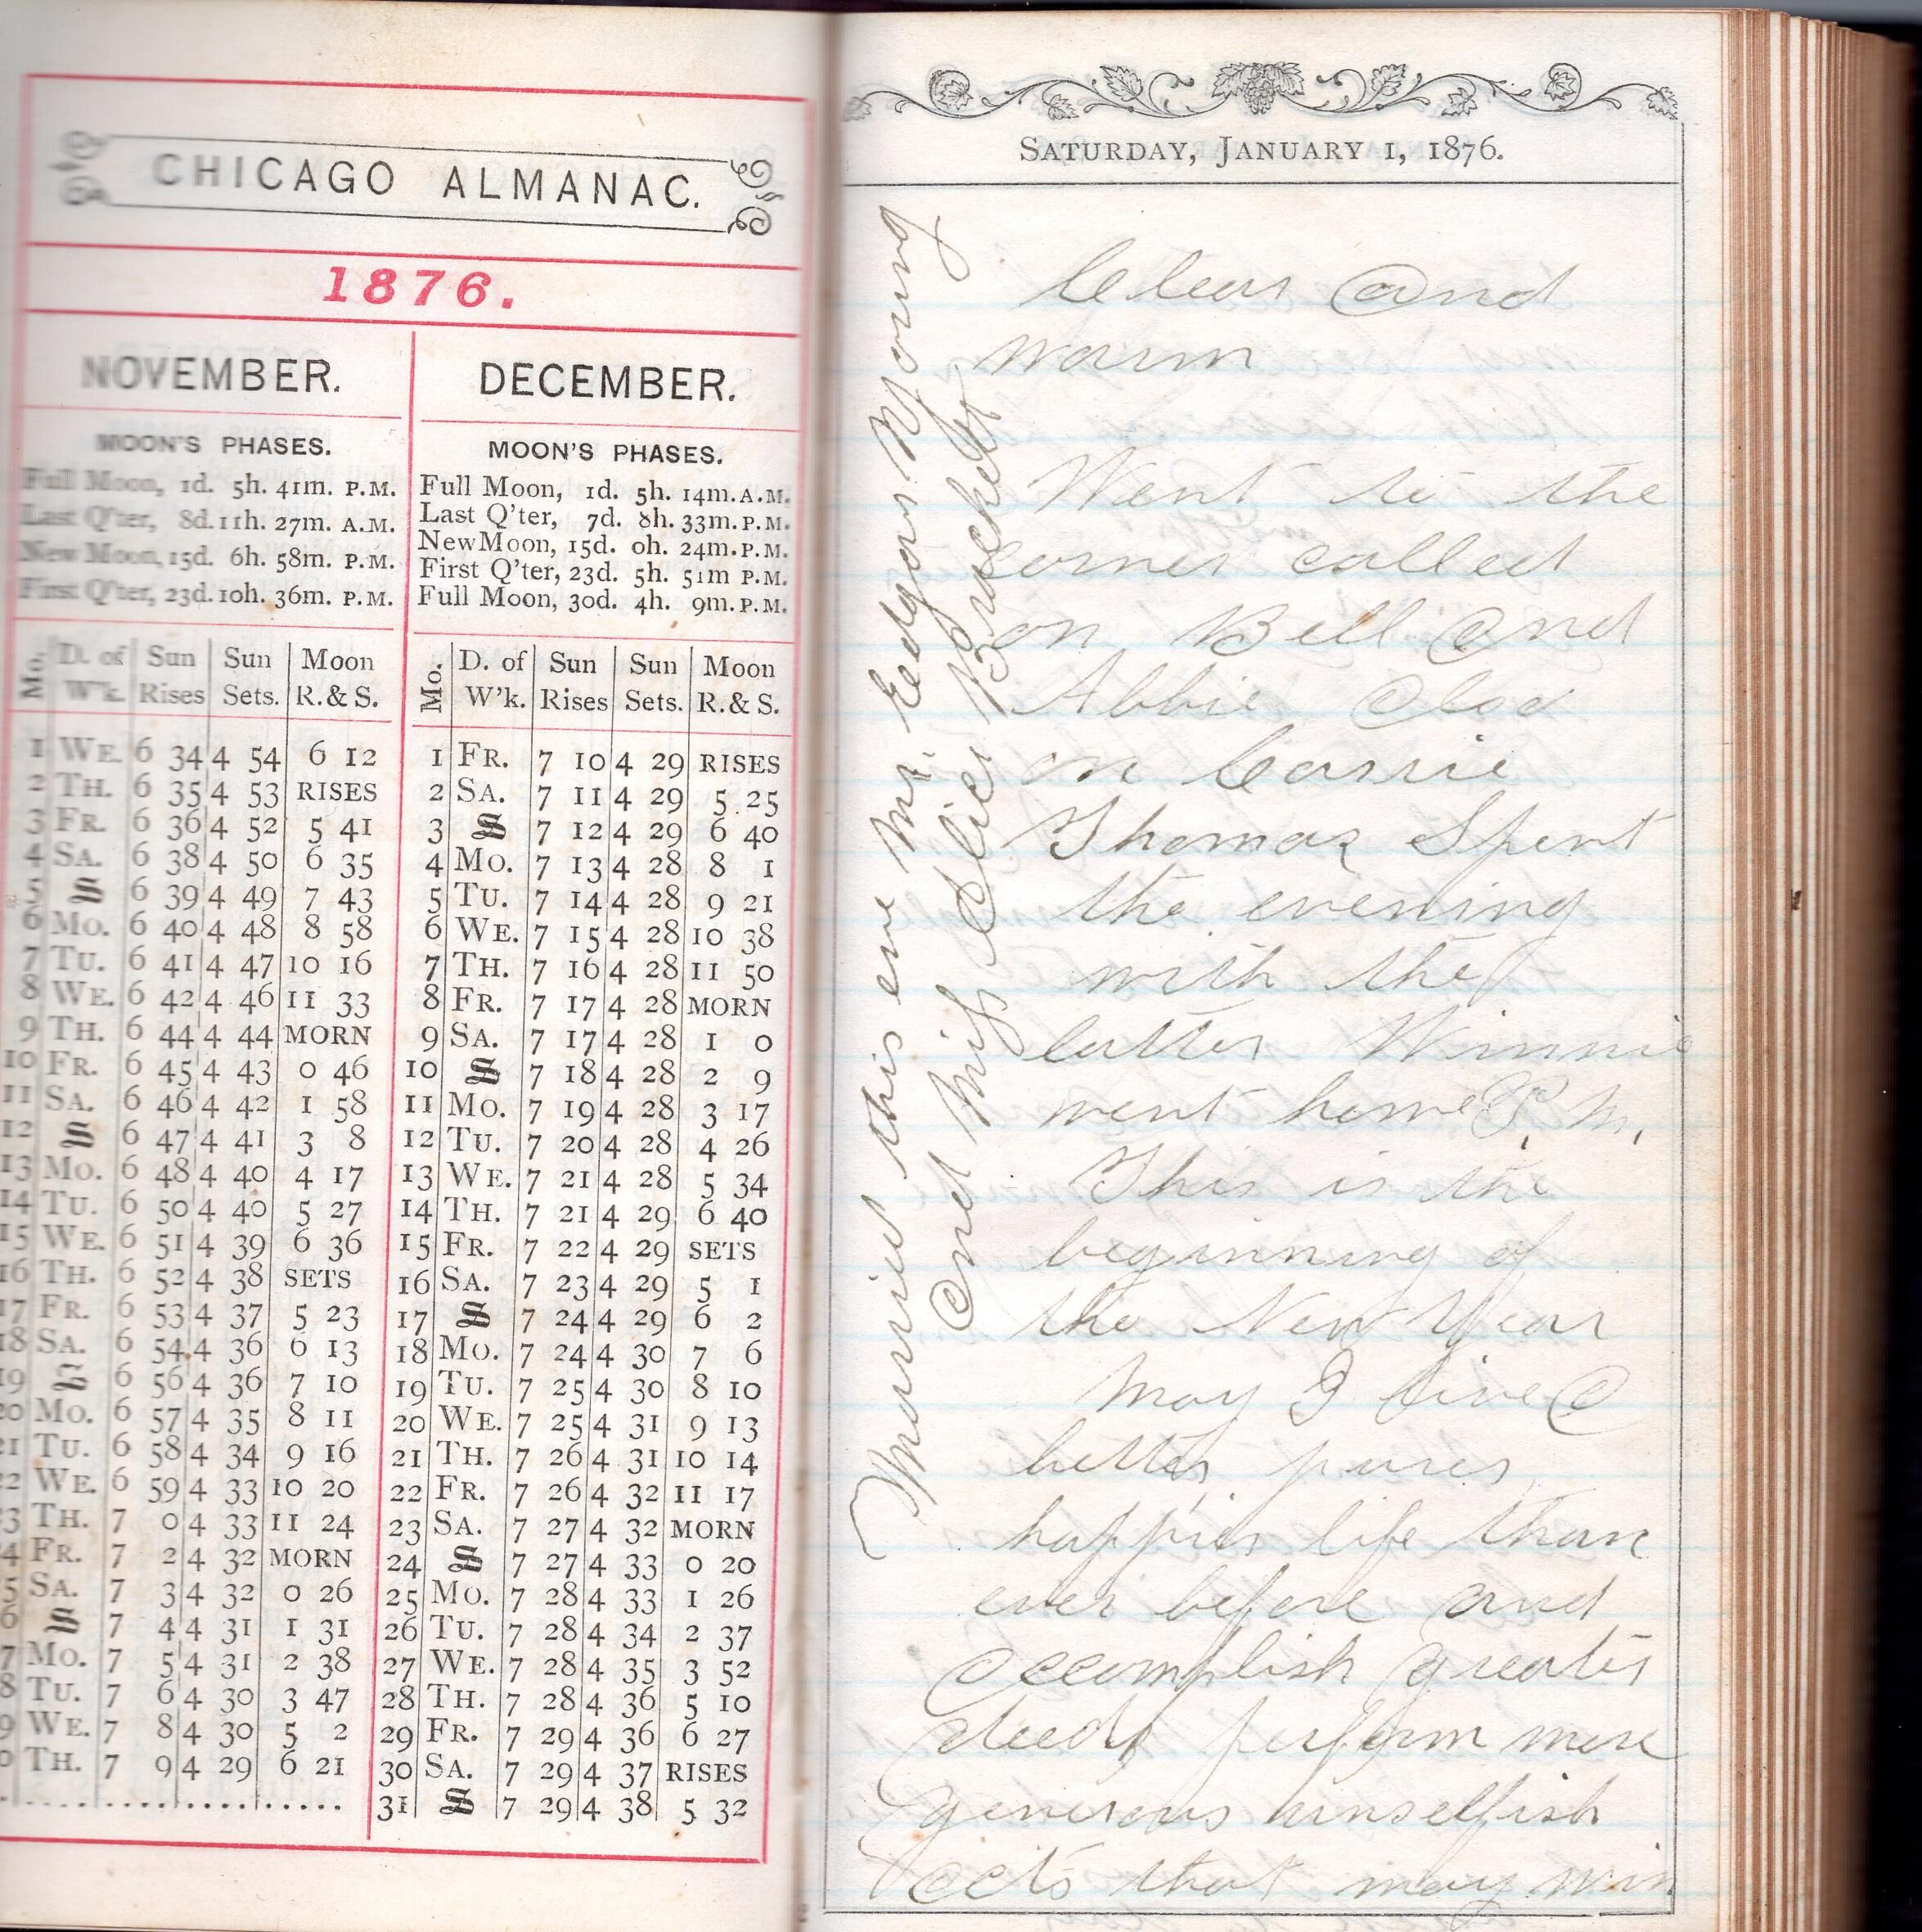 CHICAGO ALMANAC.
1876.
NOVEMBER.
MOON'S PHASES.
Full Moon, 1d. 5h. 41m. P.M.
Last Q'ter, 8d. 11h. 27m. A.M.
New Moon, 15d. 6h. 58m. P.M.
First Q'ter, 23d. 10h. 36m. P.M.
Mo. D. of W'k. Sun Rises Sun Sets. Moon R. & S.
1 WE. 6 34 4 54 6 12
2 TH. 6 35 4 53 RISES
3 FR. 6 36 4 52 5 41
4 SA. 6 38 4 50 6 35
5 S 6 39 4 49 7 43
6 Mo. 6 40 4 48 8 58
7 TU. 6 41 4 47 10 16
8 WE. 6 42 4 46 11 33
9 TH. 6 44 4 44 MORN
10 FR. 6 45 4 43 0 46
11 SA. 6 46 4 42 1 58
12 S 6 47 4 41 3 8
13 Mo. 6 48 4 40 4 17
14 TU. 6 50 4 40 5 27
15 WE. 6 51 4 39 6 36
16 TH. 6 52 4 38 SETS
17 FR. 6 53 4 37 5 23
18 SA. 6 54 4 36 6 13
19 S 6 56 4 36 7 10
20 Mo. 6 57 4 35 8 11
21 TU. 6 58 4 34 9 16
22 WE. 6 59 4 33 10 20
23 TH. 7 0 4 33 11 24
4 FR. 7 2 4 32 MORN
5 SA. 7 3 4 32 0 26
6 S 7 4 4 31 1 31
7 Mo. 7 5 4 31 2 38
8 TU. 7 6 4 30 3 47
9 WE. 7 8 4 30 5 2
0 TH. 7 9 4 29 6 21
DECEMBER.
MOON'S PHASES.
Full Moon, 1d. 5h. 14m. A.M.
Last Q'ter, 7d. 8h. 33m. P.M.
New Moon, 15d. 0h. 24m. P.M.
First Q'ter, 23d. 5h. 51m P.M.
Full Moon, 30d. 4h. 9m. P.M.
Mo. D. of W'k. Sun Rises Sun Sets. Moon R. & S.
1 FR. 7 10 4 29 RISES
2 SA. 7 11 4 29 5 25
3 S 7 12 4 29 6 40
4 Mo. 7 13 4 28 8 1
5 TU. 7 14 4 28 9 21
6 WE. 7 15 4 28 10 38
7 TH. 7 16 4 28 11 50
8 FR. 7 17 4 28 MORN
9 SA. 7 17 4 28 1 0
10 S 7 18 4 28 2 9
11 Mo. 7 19 4 28 3 17
12 TU. 7 20 4 28 4 26
13 WE. 7 21 4 28 5 34
14 TH. 7 21 4 29 6 40
15 FR. 7 22 4 29 SETS
16 SA. 7 23 4 29 5 1
17 S 7 24 4 29 6 2
18 Mo. 7 24 4 30 7 6
19 TU. 7 25 4 30 8 10
20 WE. 7 25 4 31 9 13
21 TH. 7 26 4 31 10 14
22 FR. 7 26 4 32 11 17
23 SA. 7 27 4 32 MORN
24 S 7 27 4 33 0 20
25 Mo. 7 28 4 33 1 26
26 TU. 7 28 4 34 2 37
27 WE. 7 28 4 35 3 52
28 TH. 7 28 4 36 5 10
29 FR. 7 29 4 36 6 27
30 SA. 7 29 4 37 RISES
31 S 7 29 4 38 5 32
SATURDAY, JANUARY 1, 1876.
Clear and
warm
Went to the
corner called
on Bell and
Abbie Also
on Carrie
Thomas Spent
the evening
with the
latter Winnie
went home P. M.
This is the
beginning of
the New Year
May I live a
better, purer,
happier life than
ever before and
accomplish greater
deeds perform more
generous unselfish
acts that may win
Married this eve Mr. Edgar Young
and Miss Alice Brackett